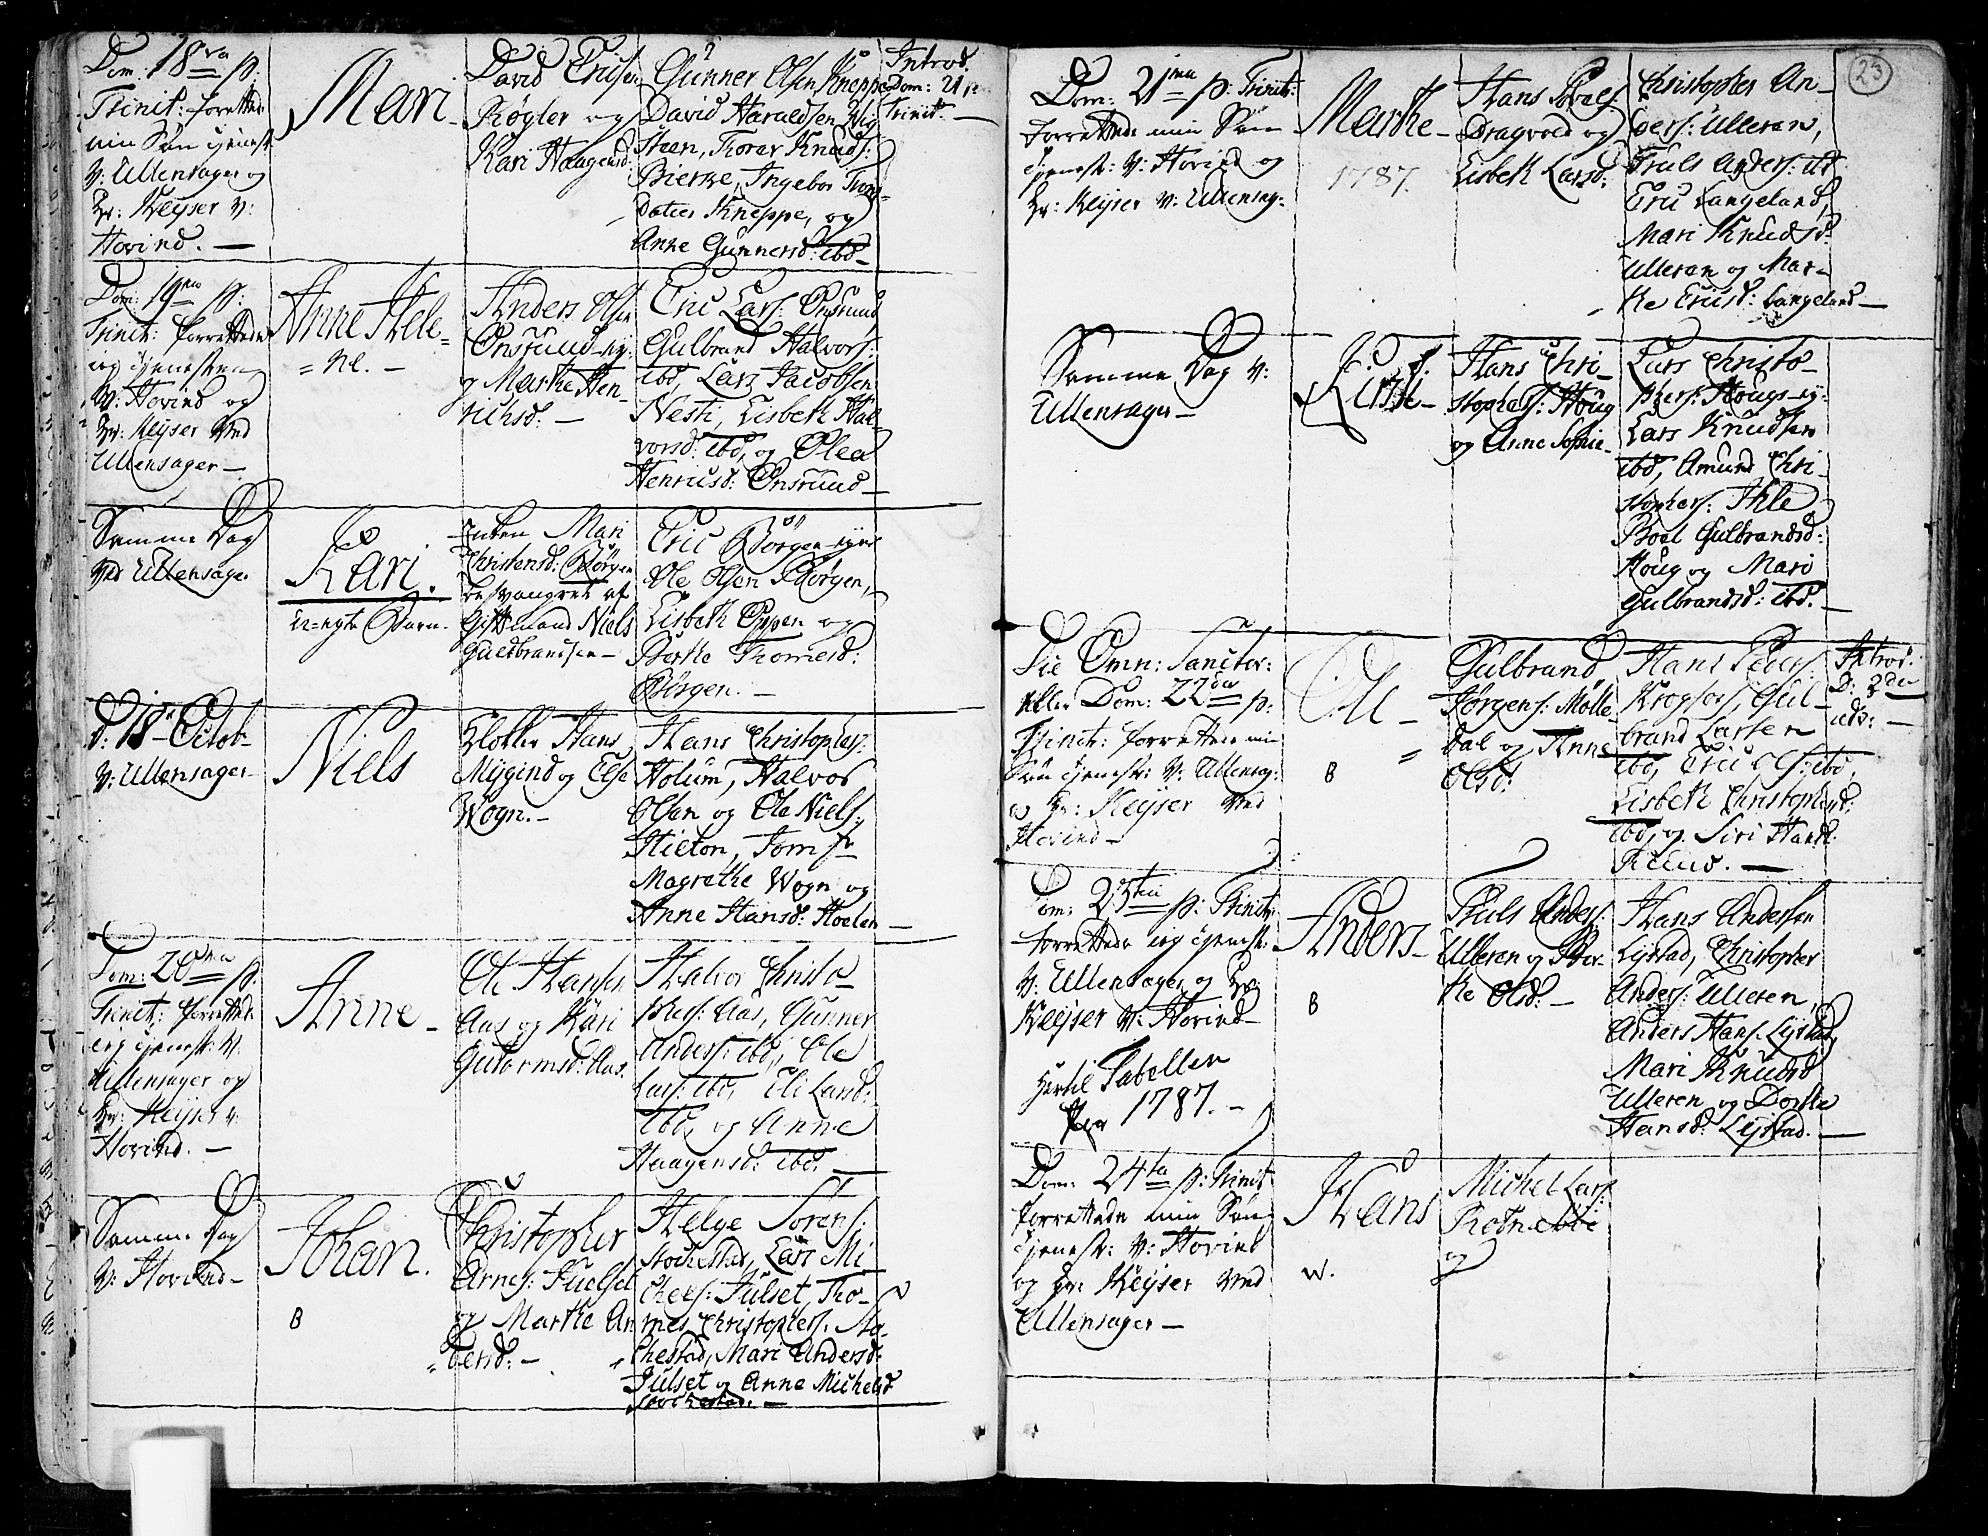 Dom: 18va p:
Trinit: forretted
min Søn tjenest:
V: Ullensager og
Hr: Keyser V:
Hovind. —
Mari.
David Erichsen
Røgler og
Kari Haagensd:
Gunner Olsen Kneppe
David Haraldsen
Steen, Thorer Knuds:
Bierke, Ingebor
Kneppe, og
Anne Gunnersd: ibd—
Introd.
Dom: 21
Trinit. —
Dom: 19na p:
Trinit: forrettede
ieg tjenesten
V: Hovind og
Hr: Keyser Ved
Ullensager —
Anne Hele=
= ne. —
Anders Olsen
Onsruud-ey:
og Marthe Hen-
richsd: —
Eric Lars: Onsruud
Gulbrand Halvors:
ibd, Lars Jacobsen
Nesti, Lisbeth Hal-
vorsd: ibd, og Olea
Henricsd: Onsruud—
Samme Dag
Ved Ullensager
Kari.
u=egte Barn.
Enken Mari
Christensd: Børgen
besvangret af
Gift mand Niels
Guldbrandsen—
Eric Børgen-eyer
Ole Olsen Børgen,
Lisbeth Oppen og
Berthe Thomesd:
Børgen. —
d: 18de Octob
V: Ullensager—
Niels
Klokker Hans
Mygind og Else
Wogn.—
Hans Christophers:
Holum, Halvor
Olsen og Ole Niels:
Hielon, Jomfr
Magrethe Wogn og
Anne Hansd: Hoelen—
Dom: 20ma p:
Trinit: forrettede
ieg tjenest: V:
Ullensager og
Hr: Keyser V:
Hovind. —
Anne —
Ole Hansen
Aas og Kari
Gutormsd: Aas.
Halvor Christo-
phers: Aas, Gunner
Anders: ibd, Ole
Lars: ibd, Eli Larsd:
ibd, og Anne
Haagensd: ibd. —
Samme Dag
V: Hovind—
Johan.
B
Christopher
Arnes: Julset
og Marthe An
= dersd: —
Helge Sørens:
Stochestad, Lars Mi
chels: Julset, Tho-
mes Christophers: Sto-
chestad, Mari Andersd:
Julset og Anne Michelsd
Stochestad. —
23
Dom: 21ma p: Trinit:
forrettede min Søn
tjenest: V: Hovind og
Hr: Keyser V: Ullensag:
Marthe —
1787.
Hans Povels
Dragvold og
Lisbeth Larsd:
Christopher An-
ders: Ulleren,
Truls Anders: ibd
Eric Langeland,
Mari Knudsd:
Ulleren og Mar-
the Ericsd: Langeland—
Samme Dag V:
Ullensager—
Kirsti—
Hans Chri-
stophers: Houg
og Anne Sophie—
Lars Christo-
phers: Hougs-ey:
Lars Knudsen
ibd, Amund Chri-
stophers: Ihle
Boel Gulbrandsd:
Houg og Mari
Gulbrandsd: ibd. —
Die Omn: Sanctor:
eller Dom: 22da p:
Trinit: forrettede min
Søn tjenest: V: Ullensag:
og Hr: Keyser Ved
Hovind—
Ole —
B
Gulbrand
Jørgens: Mølle-
dal og Anne
Olsd:
Hans Peders:
Krogfos, Gul-
brand Larsen
ibd, Eric Ols: ibd,
Lisbeth Christophersd:
ibd, og Siri Hansd:
Introd:
D: 2den
adv: —
Dom: 23tia p: Trinit:
forrettede ieg tjenest:
V: Ullensager og Hr:
Keyser V: Hovind—
Hertil Tabellen
for 1787. —
Anders—
B
Truls Anders:
Ulleren og Ber-
the Olsd: —
Hans Andersen
Lystad, Christopher
Anders: Ulleren,
Anders Hans: Lystad,
Mari Knudsd
Ulleren og Dorthe
Hansd: Lystad. —
Dom: 24ta p: Trinit
forrettede min Søn
tjenest: V: Hovind
og Hr: Keyser Ved
Ullensager —
Hans
w.
Michel Lars:
og